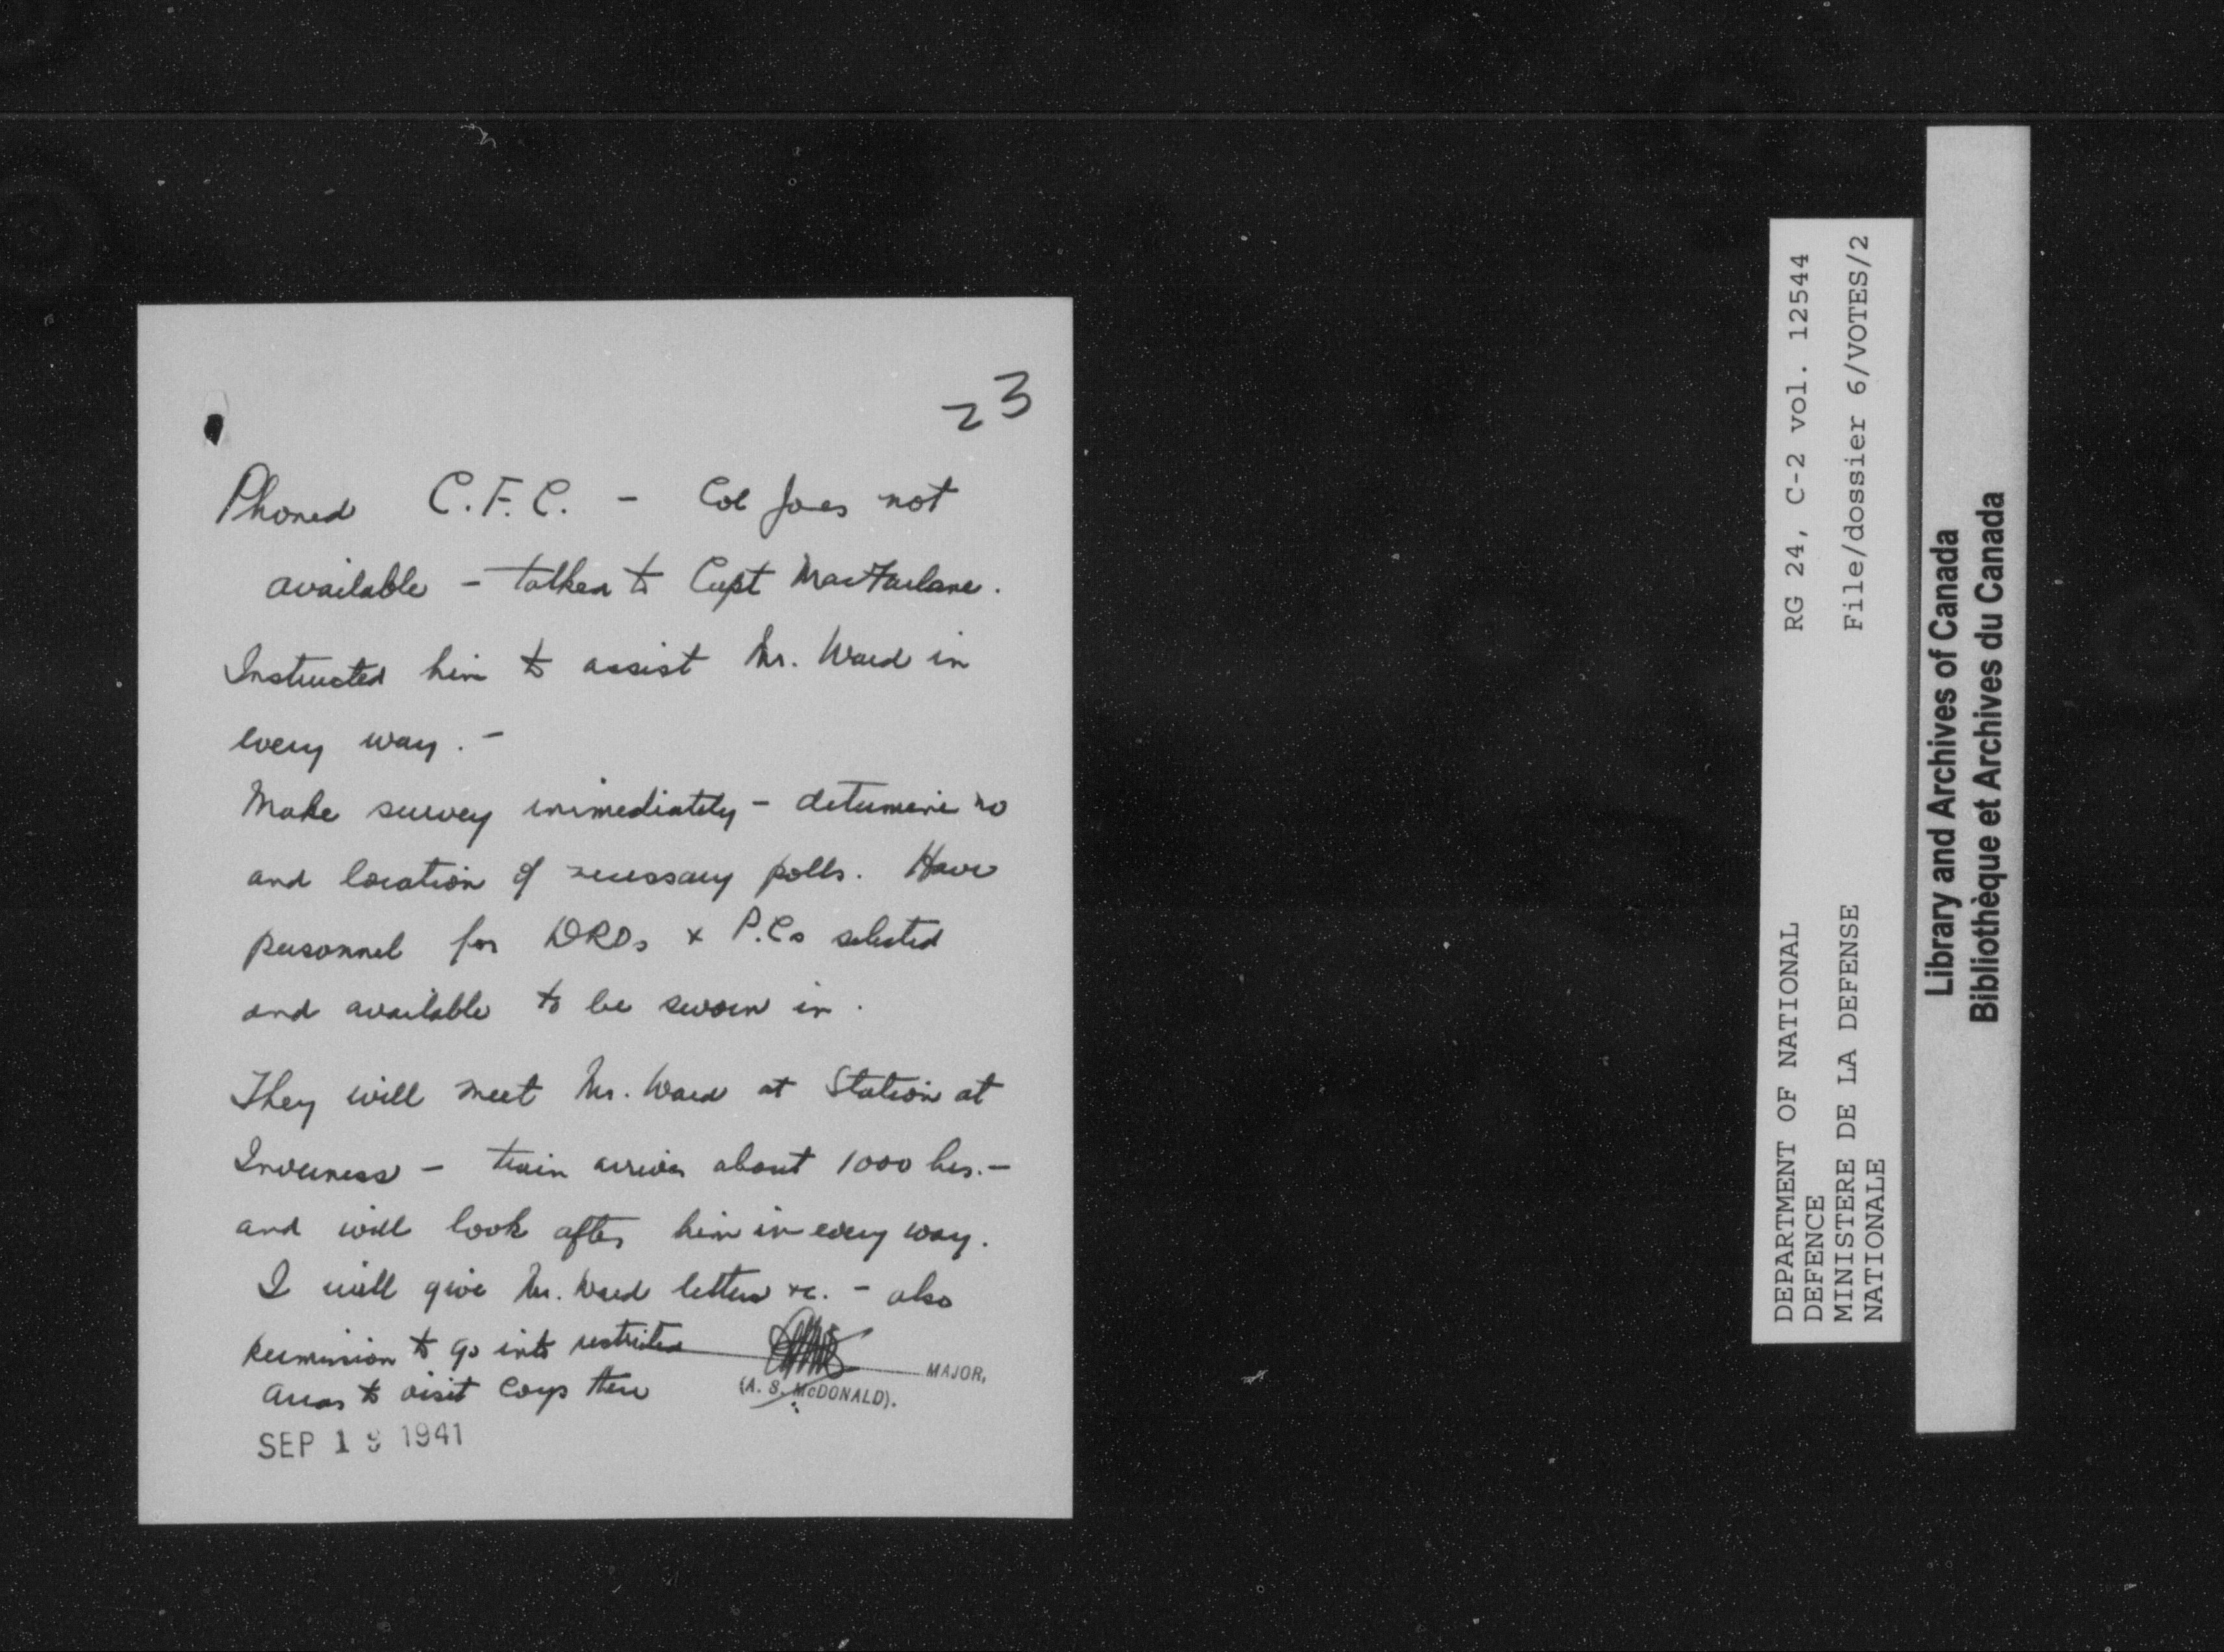 23
Phoned C.F.C. - Col Jones not
available - talked to Capt MacFarlane.
Instructed him to assist Mr. Ward in
every way. -
Make survey immediately - determine no
and location of necessary polls. Have
personnel for DROs & P.Cs selected
and available to be sworn in.
They will meet Mr. Ward at Station at
Inverness - train arrives about 1000 hrs. -
and will look after him in every way.
I will give Mr. Ward letters &c. - also
permission to go into restricted
areas to visit Coys there
MAJOR,
(A. S. McDONALD).
SEP 19 1941
RG 24, C-2 vol. 12544
File/dossier 6/VOTES/2
DEPARTMENT OF NATIONAL
DEFENCE
MINISTERE DE LA DEFENSE
NATIONALE
Library and Archives of Canada
Bibliothèque et Archives du Canada